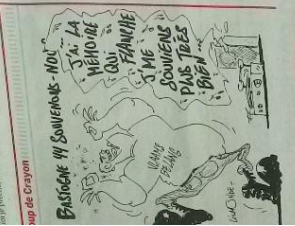 oup de Crayon
BASTOGNE 44 SOUVENONS-NOU
J'AI LA
MÉMOIRE
QUI
FLANCHE
J'ME
SOUVIENS
PLUS TRÈS
BIEN...
VILAINS